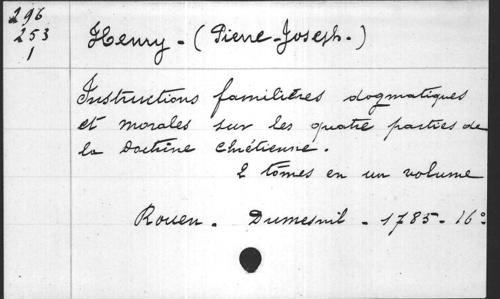 296
253
1
Henry - (Pierre-Joseph.)
Instructions familières dogmatiques
et morales sur les quatre parties de
la Doctrine chrétienne.
2 tômes en un volume
Rouen. Dumesnil - 1785 - 16°